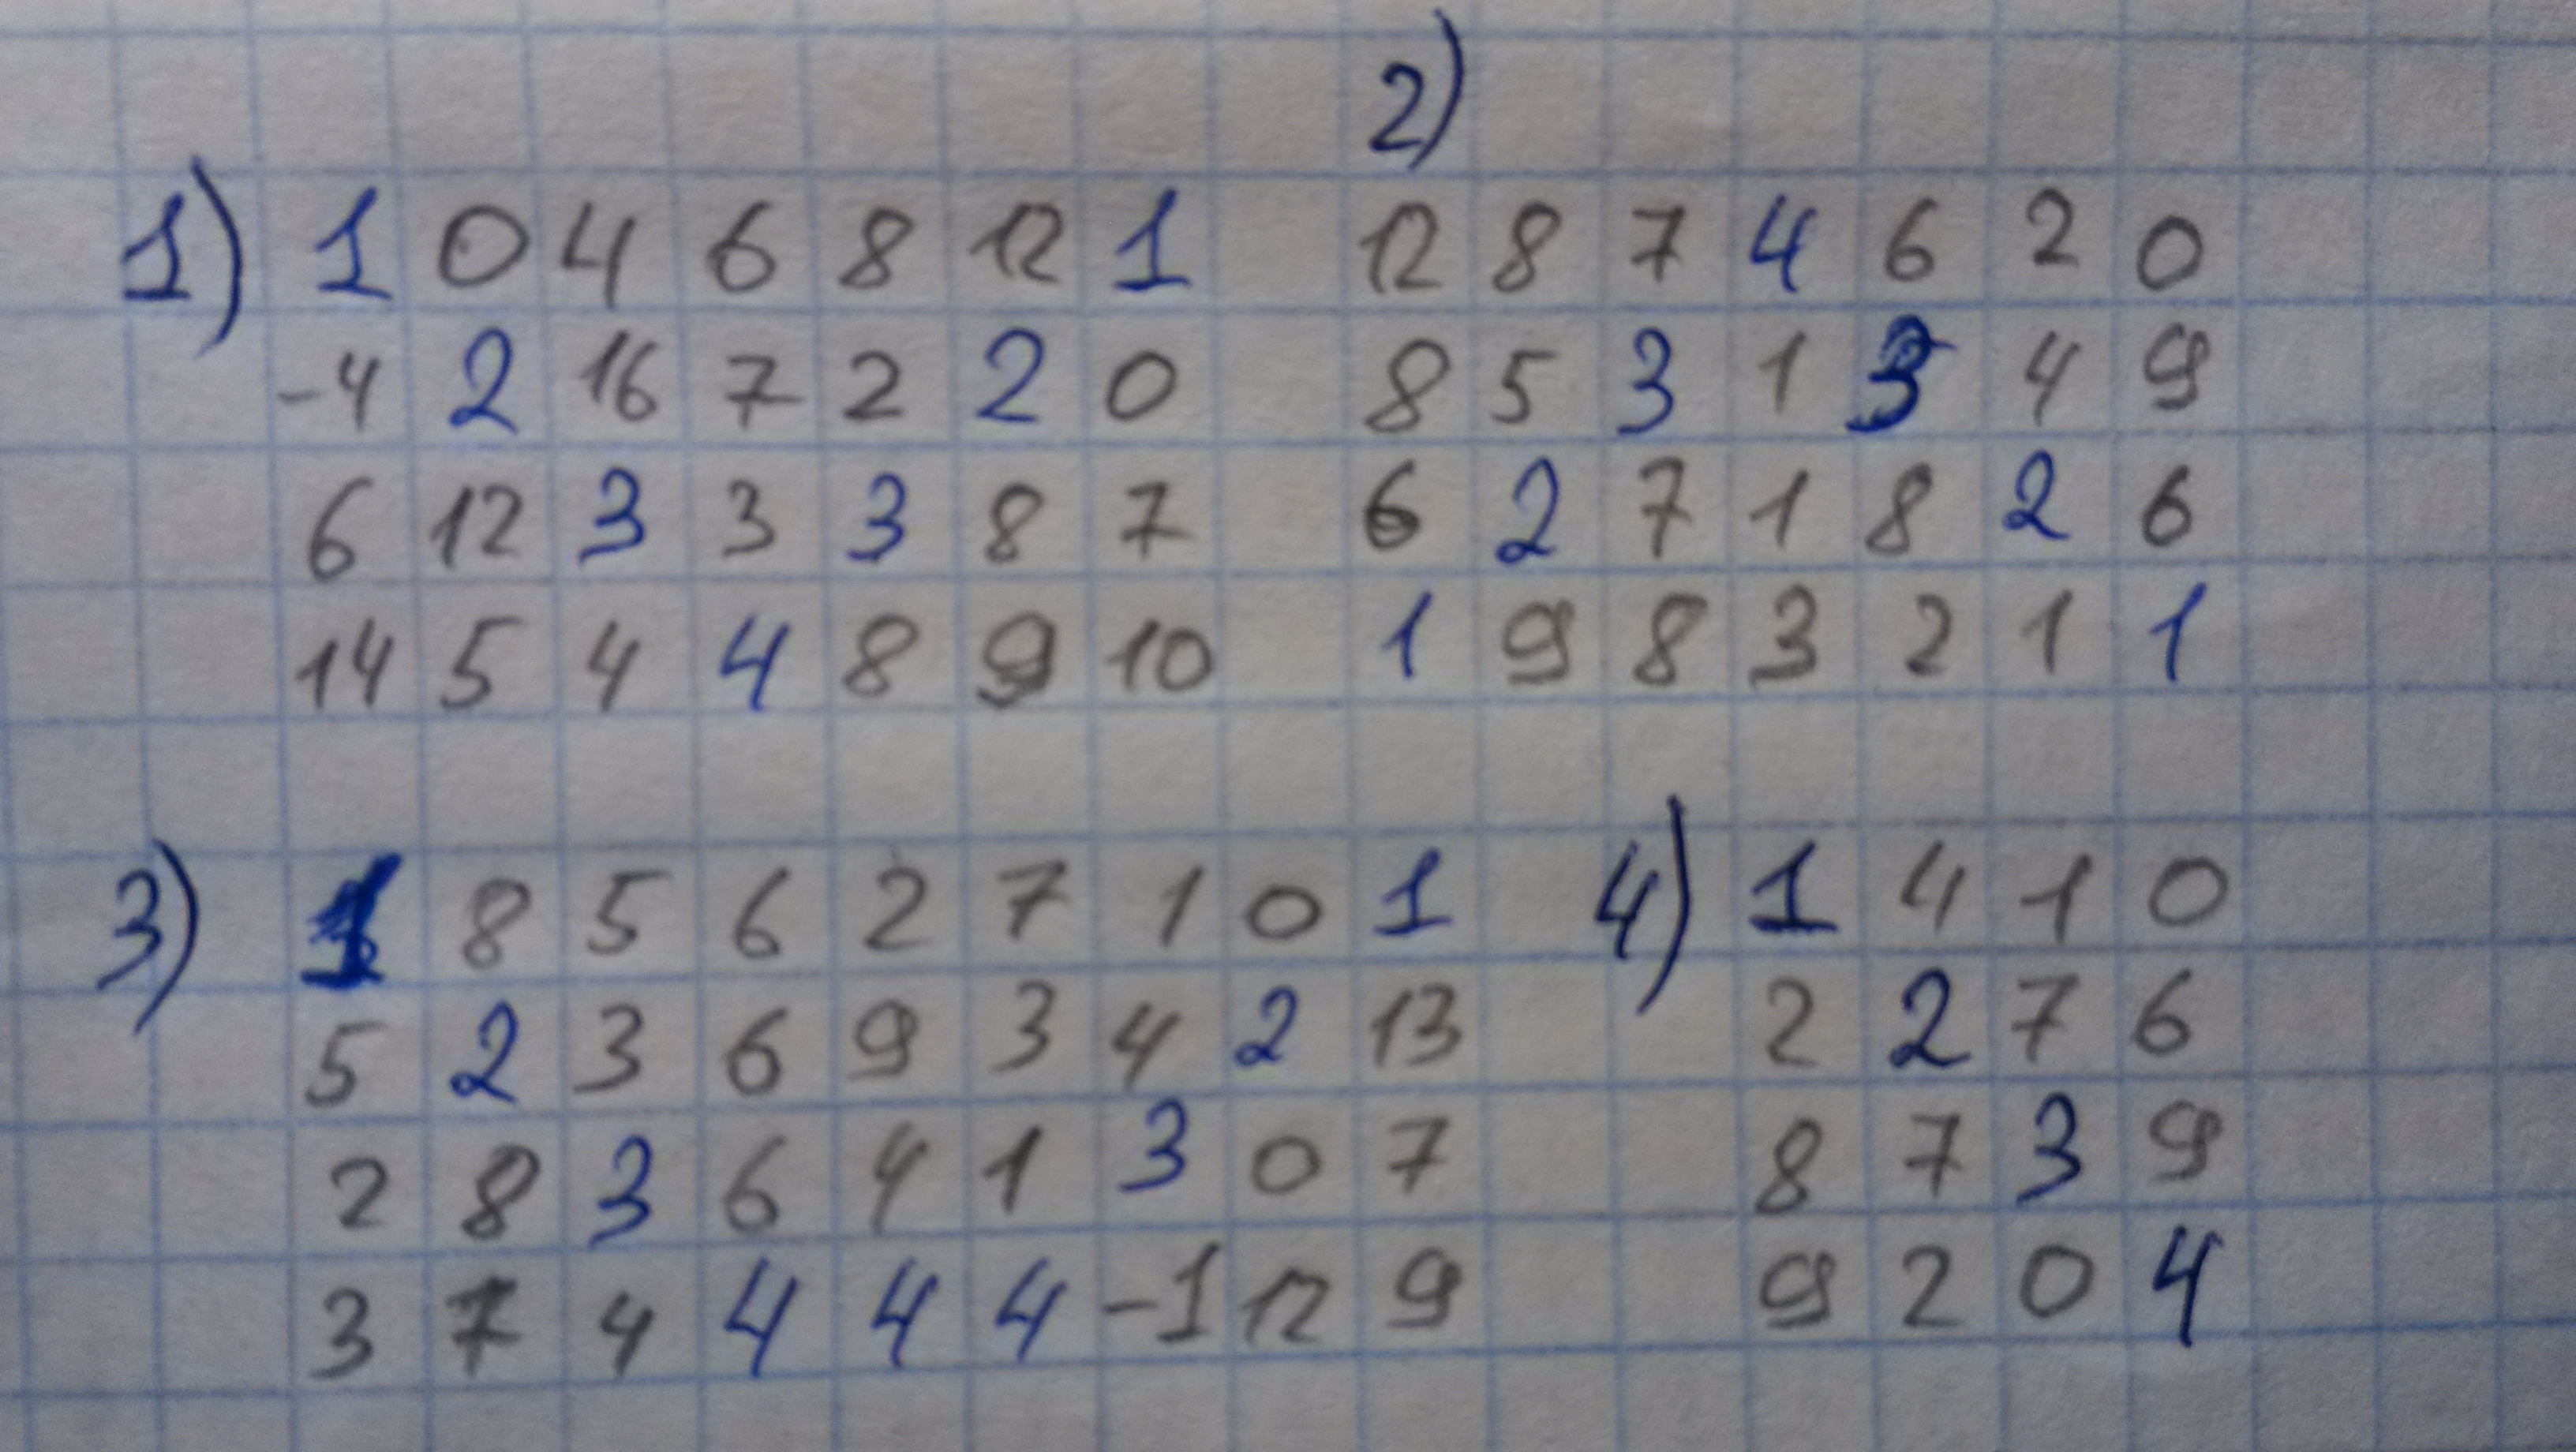 2)
1) 1 0 4 6 8 12 1 12 8 7 4 6 2 0
-4 2 16 7 2 2 0 8 5 3 1 3 4 9
6 12 3 3 3 8 7 6 2 7 1 8 2 6
14 5 4 4 8 9 10 1 9 8 3 2 1 1
3) 1 8 5 6 2 7 1 0 1 4) 1 4 1 0
5 2 3 6 9 3 4 2 13 2 2 7 6
2 8 3 6 4 1 3 0 7 8 7 3 9
3 7 4 4 4 4 -1 12 9 9 2 0 4